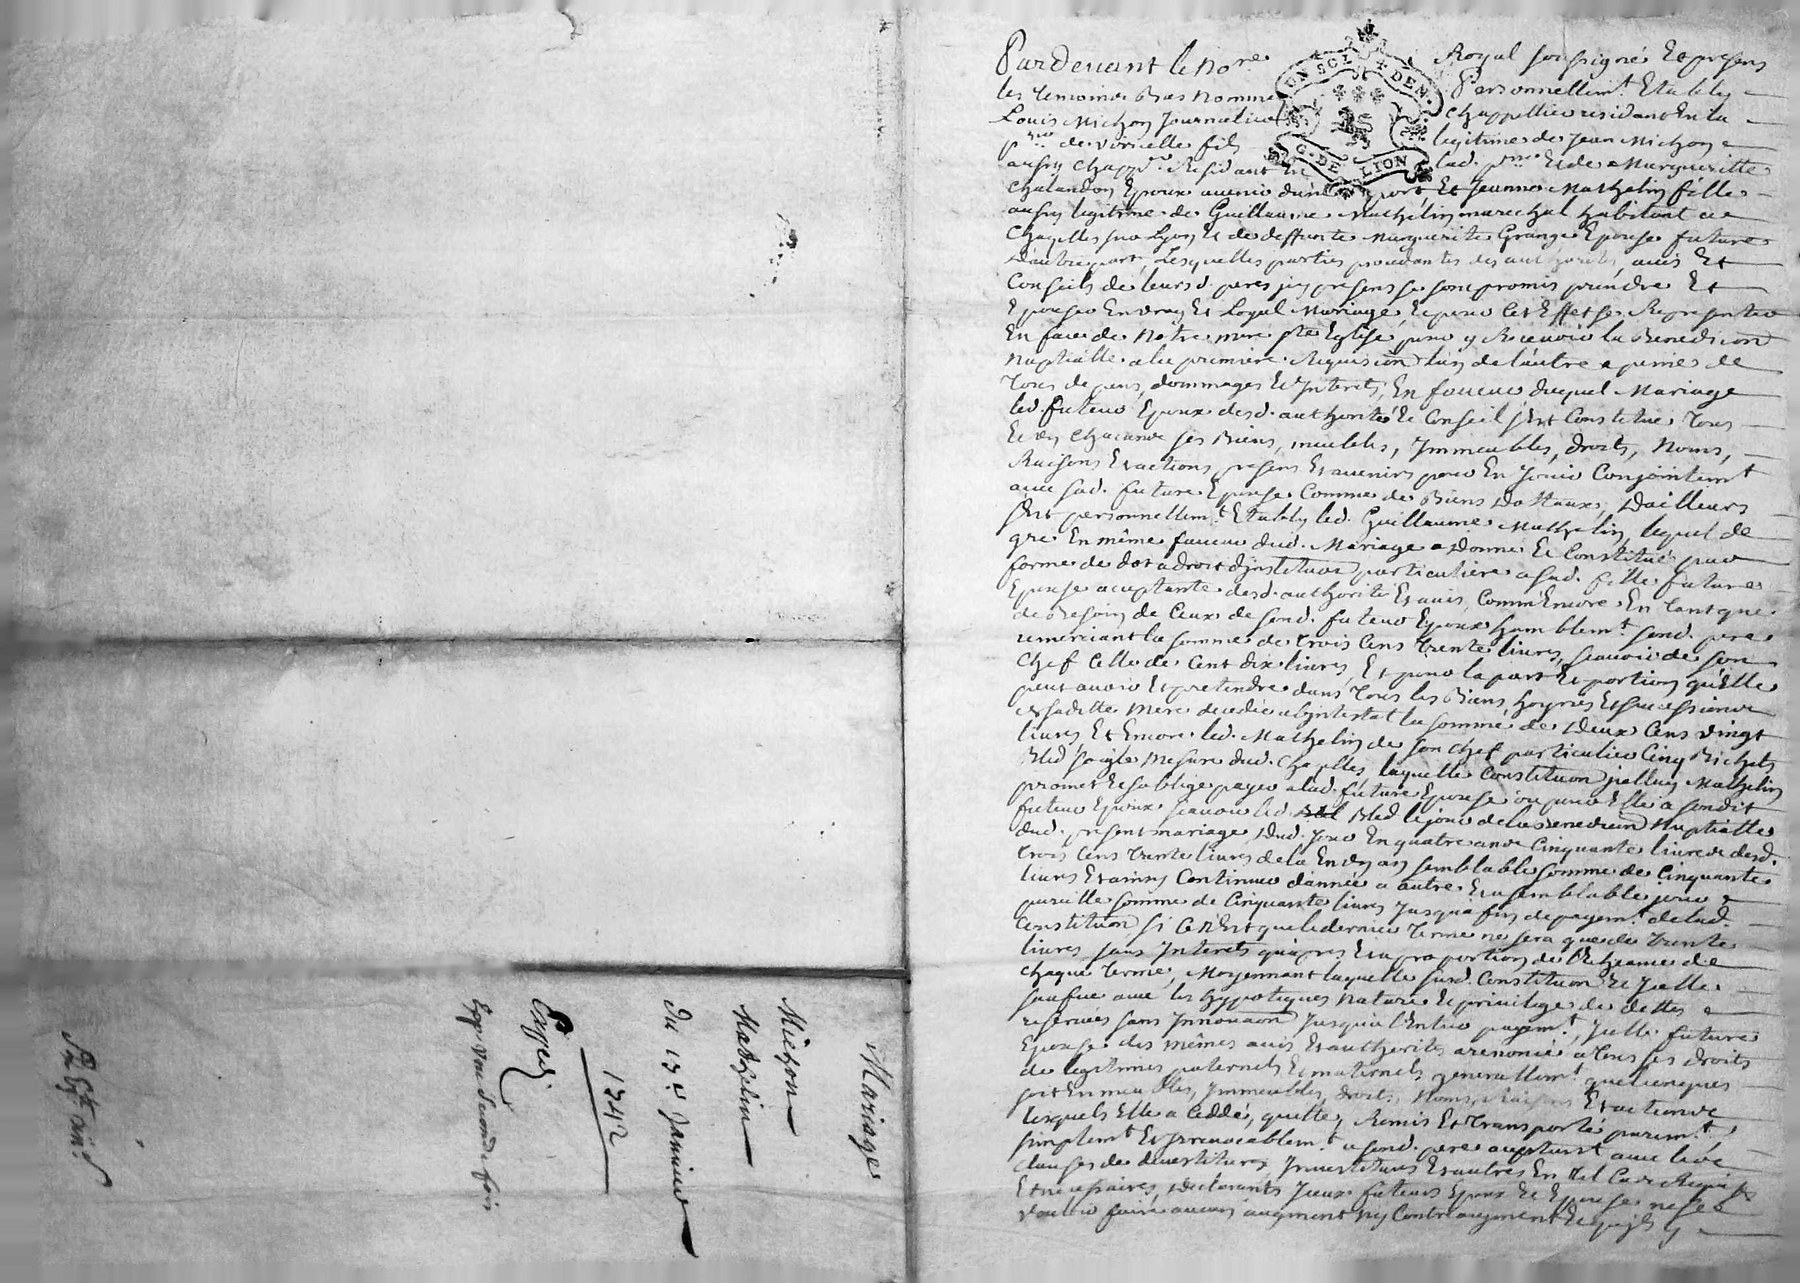 Mariage
Michon
Mathelin
du 13e Janvier
1742
Expedi.
Exp. une seconde fois
Pardevant le Nore Royal soussigné Et presens
les Temoins Bas Nommé Personnellemt Etably
Louis Michon Journalier Chappellier residant En la
de fils legitime de Jean Michon
aussy Chappr. Residant En lad. pnee Et de Margueritte
Chalandon Epoux avenir dune part, Et Jeanne Mathelin fille
aussy legitime de Guillaume Mathelin marechal habitant a
Chazelles sur Lyon Et de deffunte Marguerite Grange Epouse future
Dautre part, Lesquelles parties procedantes des authorités, avis Et
Conseils de leursd. peres icy presens se sont promis prendre Et
Epouser En vray Et Loyal Mariage, Et pour Cet Effet se Representer
En face de Notre mere Ste Eglise pour y Recevoir la Benediction
Nuptialle a la premiere Requision lun de l'autre a peine de
Tous depens, dommages Et Interets, En faveur duquel Mariage
led. futeur Epoux desd. authorité Et Conseil s'Est Constitué Tous
Et un Chacuns ses Biens, meubles, Immeubles, droits, Noms,
Raisons Et actions presens Et avenirs pour En Jouir Conjointemt
avec sad. future Epouse Comme de Biens Dottaux, Dailleurs
s'Est personnellemt Etably led. Guillaume Mathelin, lequel de
gre En même faveur dud. Mariage a Donné Et Constitué par
forme de dot a droit d'institution particuliere a sad. fille future
Epouse acceptante desd. authorité Et avis, Comm'Encore En Tant que
de Besoin de Ceux de sond. futeur Epoux humblemt sond. pere
remerciant la somme de Trois Cens Trente livres, scavoir de son
Chef Celle de Cent dix livres, Et pour la part Et portion qu'Elle
peut avoir Et pretendre dans Tous les Biens hoyries Et successions
de saditte Mere decedée abintestat la somme de Deux Cens vingt
livres Et Encore led. Mathelin de son chef particulier Cinq Bichets
Bled seigle Mesure dud. Chazelles, laquelle Constitution icelluy Mathelin
promet Et s'oblige payer a lad. future Epouse ou pour Elle a sondit
futeur Epoux scavoir led. Bled le jour de la Benediction Nuptialle
dud. present mariage, Dud. Jour En quatre ans Cinquante livres desd.
Trois Cens Trente livres de la En un an semblable somme de Cinquante
livres Et ainsy Continuer d'année a autre Et a semblable jour
pareille somme de Cinquante livres Jusqua fin de payemt de lad.
Constitution si Ce n'Est que le dernier Terme ne sera que de Trente
livres sans Interets qu'apres Et a proportion de l'Echeance de
chaque Terme, Moyennant laquelle susd. Constitution Et Icelle
sauffue avec les hypoteques Nature Et privilege de dettes
reservés sans Innovaon Jusqua l'Entier payemt, Icelle future
Epouse des mêmes avis Et authorités a renoncé a Tous ses droits
de legitimes paternels Et maternels generallemt quelconques
soit En meubles, Immeubles, droits, Noms, Raisons Et actions
lesquels Elle a Ceddé, quitté, Remis Et Transporté puremt
simplemt Et Irrevocablemt a sond. pere acceptant avec les
clauses de devestitures Investitures Et autres En tel Cas Requises
Et necessaires, Declarants Iceux futeurs Epoux Et Epouse ne se
vouloir faire aucun augment ny Contreaugment
UN SOL 4 DEN.
G. DE LION